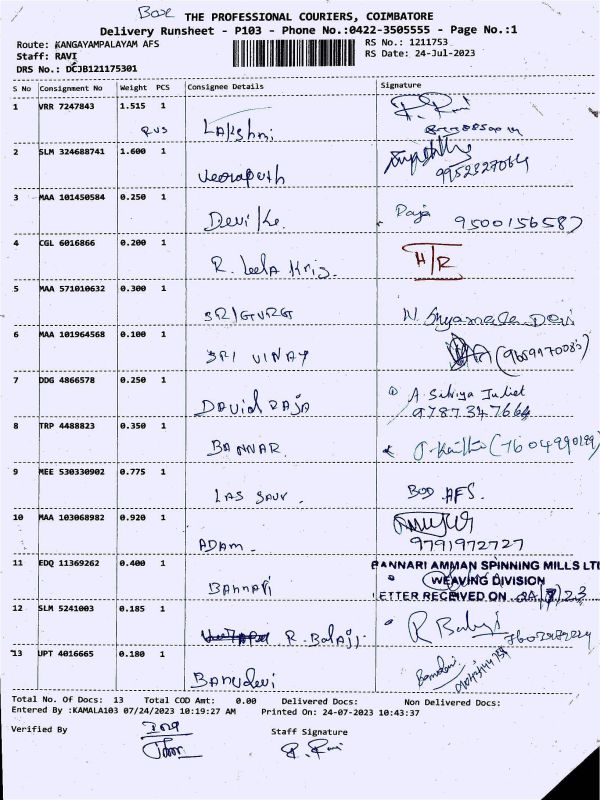 Box THE PROFESSIONAL COURIERS, COIMBATORE
Delivery Runsheet - P103 - Phone No.:0422-3505555 - Page No.:1
Route: KANGAYAMPALAYAM AFS RS No.: 1211753
Staff: RAVI RS Date: 24-Jul-2023
DRS No.: DCJB121175301
S No Consignment No Weight PCS Consignee Details Signature
1 VRR 7247843 1.515 1
Lakshmi
2 SLM 324688741 1.600 1
9952327064
3 MAA 101450584 0.250 1
Devi Ke. Raja 9500156587
4 CGL 6016866 0.200 1 H/R
R. Leela Kris.
5 MAA 571010632 0.300 1
SRIGURG N. Shyamala Devi
6 MAA 101964568 0.100 1
SRI VINAY (9659170085)
7 DDG 4866578 0.250 1
David RAJA A. Silviya Juliet
9787347664
8 TRP 4488823 0.350 1
BANNAR (7604990189)
9 MEE 530330902 0.775 1
LAS SAUV. BOD AFS.
10 MAA 103068982 0.920 1
ADAM. 9791972727
11 EDQ 11369262 0.400 1 BANNARI AMMAN SPINNING MILLS LTD
BANNARI WEAVING DIVISION
LETTER RECEIVED ON 24/7/23
12 SLM 5241003 0.185 1
R. Balaji R Balaji
13 UPT 4016665 0.180 1
Banudevi Banudevi
Total No. Of Docs: 13 Total COD Amt: 0.00 Delivered Docs: Non Delivered Docs:
Entered By :KAMALA103 07/24/2023 10:19:27 AM Printed On: 24-07-2023 10:43:37
Verified By Staff Signature
R. Ravi